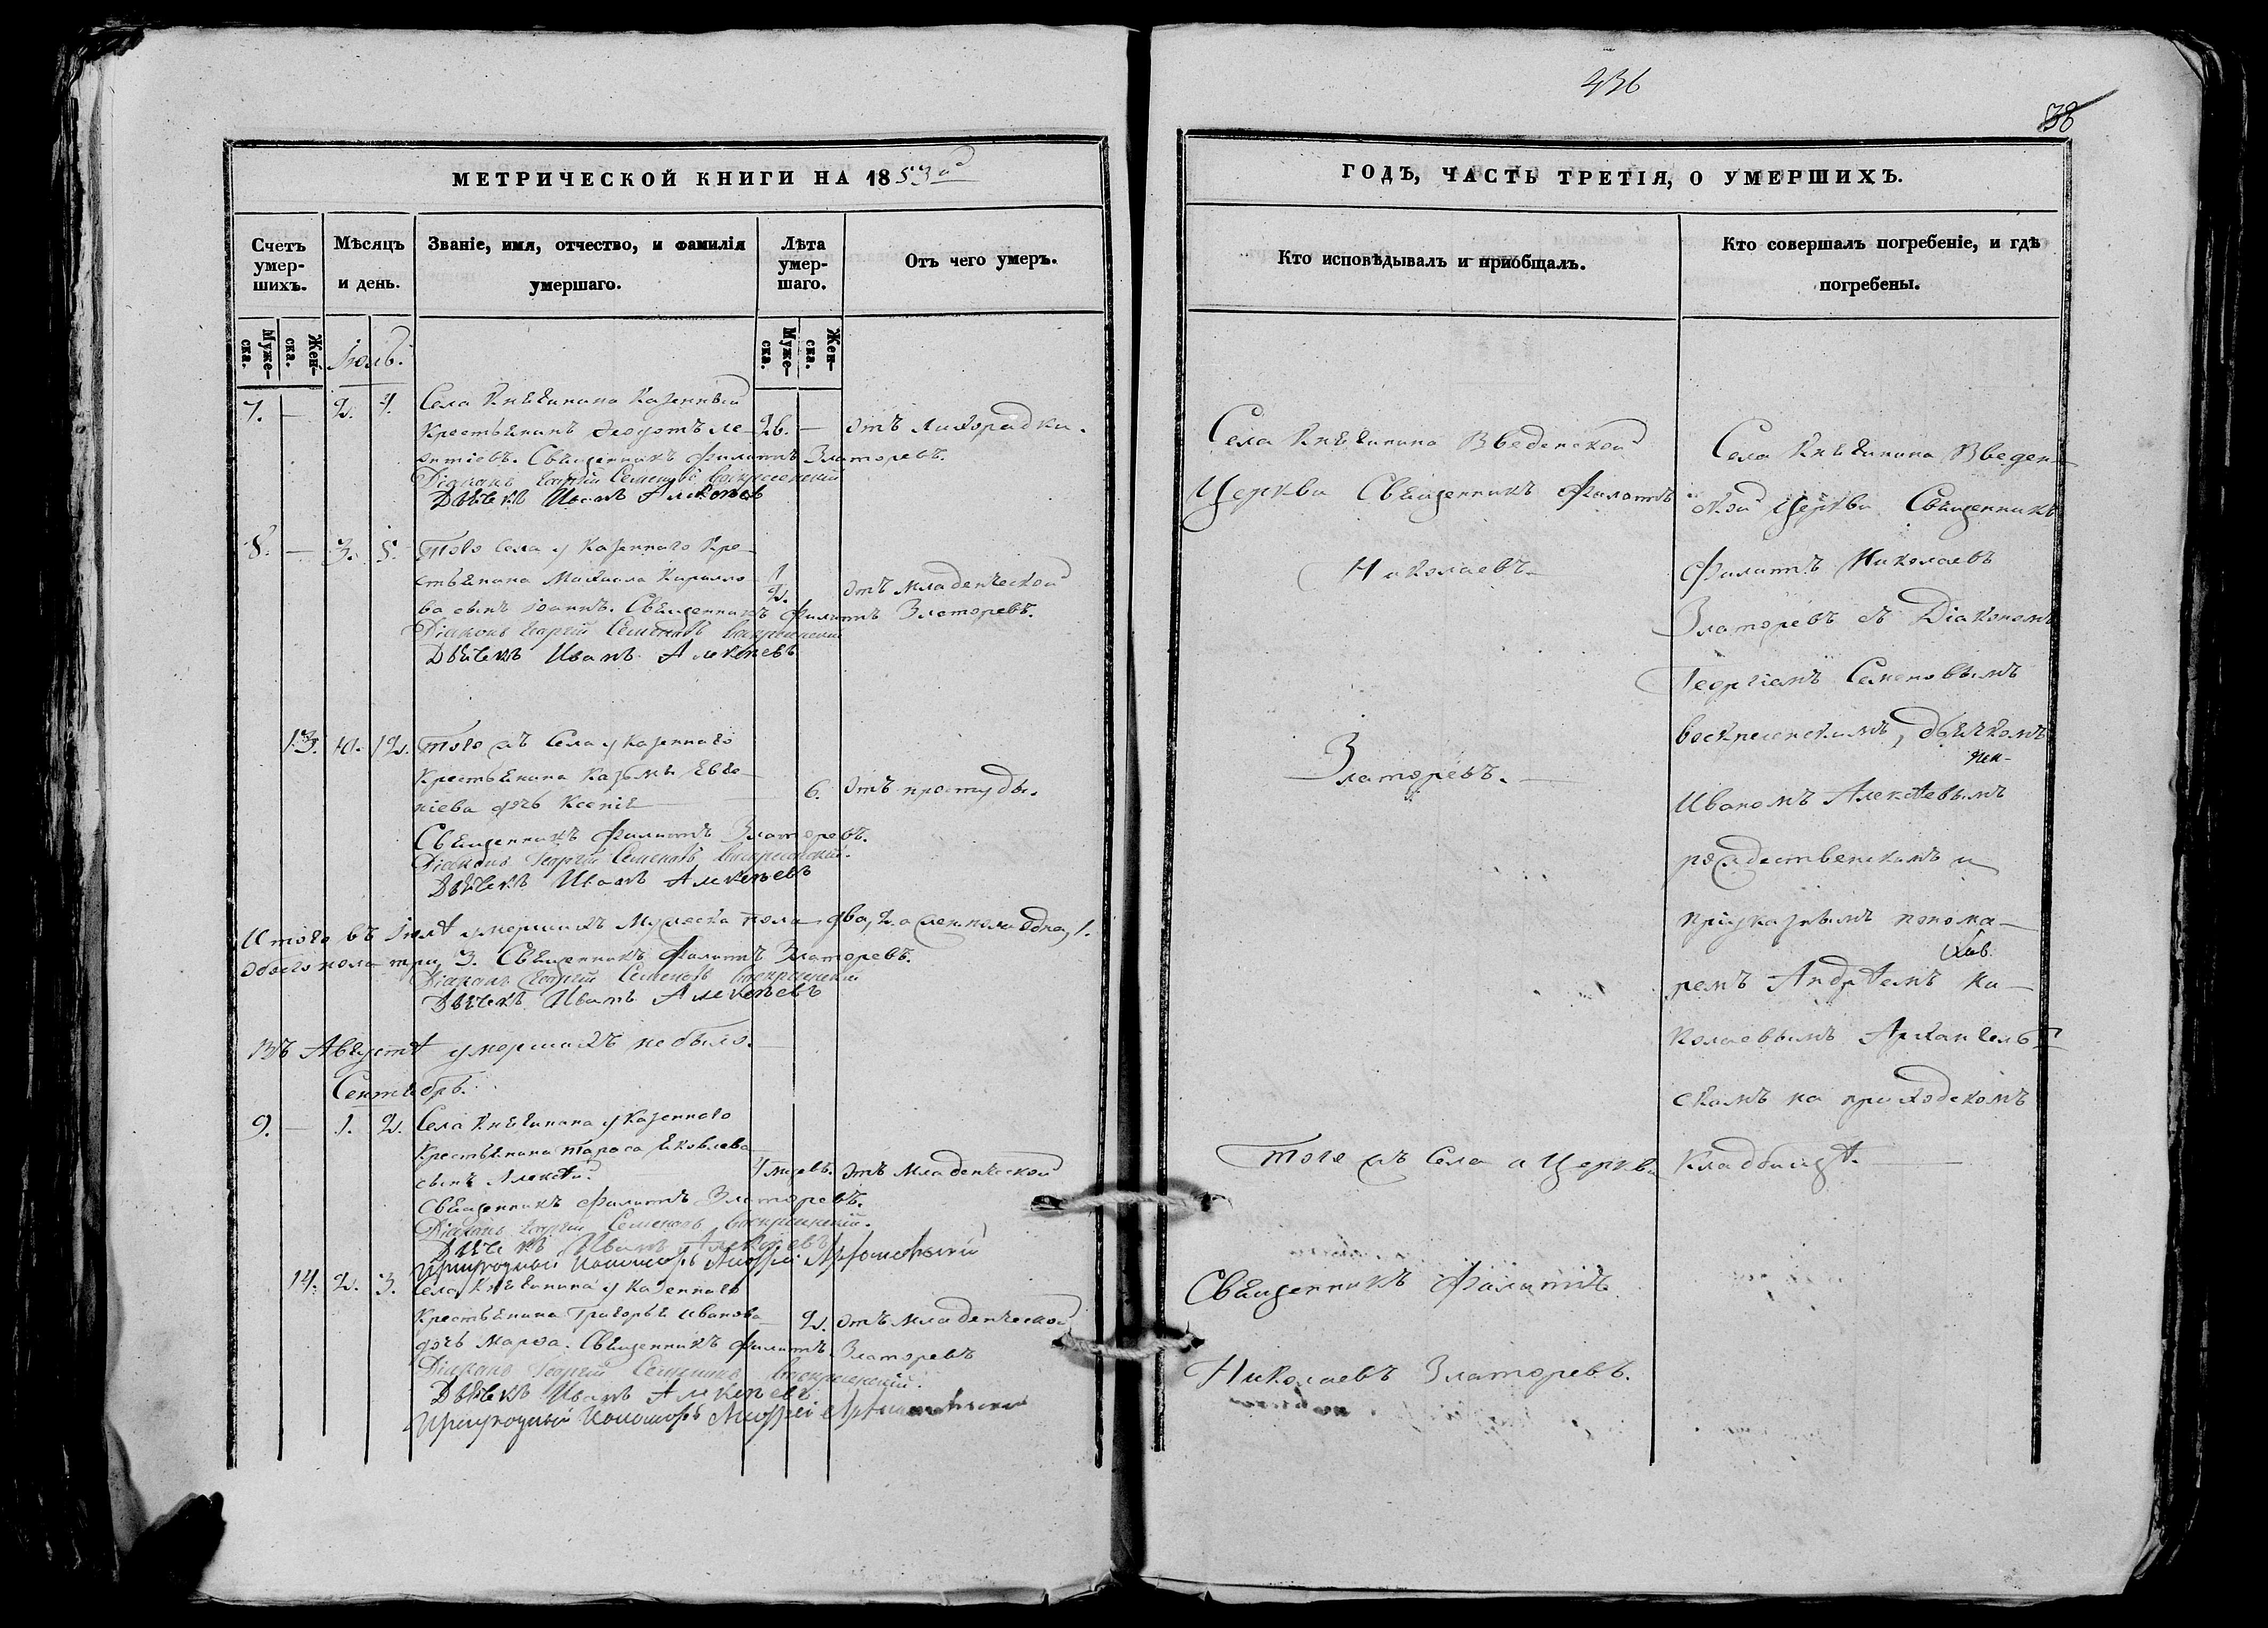 436
38
МЕТРИЧЕСКОЙ КНИГИ НА 1853й
ГОДЪ, ЧАСТЬ ТРЕТІЯ, О УМЕРШИХЪ.
Счетъ умер-шихъ.
Мѣсяцъ и день.
Званіе, имя, отчество, и фамилія умершаго.
Лѣта умер-шаго.
Отъ чего умеръ.
Кто исповѣдывалъ и пріобщалъ.
Кто совершалъ погребеніе, и гдѣ погребены.
Муже-ска.
Жен-ска.
Муже-ска.
Жен-ска.
Іюль.
7. — 2. 4. Села Княгинина Казенный
Крестьянинъ Ѳеодотъ Ле- 26. — отъ лихорадки.
онтіевъ. Священникъ Филиппъ Златоревъ.
Діаконъ Георгій Семеновъ Воскресенскій
Дьячекъ Иванъ Алексѣевъ
8. — 3. 5. Того села у Казеннаго Кре-
стьянина Михаила Кирилло- 1/2. отъ младенческой
ва сынъ Іоаннъ. Священникъ Филиппъ Златоревъ.
Діаконъ Георгій Семеновъ Воскресенскій
Дьячекъ Иванъ Алексѣевъ
13. 10. 12. Того жъ Села у казеннаго
Крестьянина Казьмы Евге-
ніева дочь Ксенія — 6. отъ простуды.
Священникъ Филиппъ Златоревъ.
Діаконъ Георгій Семеновъ Воскресенскій.
Дьячекъ Иванъ Алексѣевъ
Итого въ Іюлѣ умершихъ Мужеска пола два, 2. а женска одна, 1.
обоего пола три, 3. Священникъ Филиппъ Златоревъ.
Діаконъ Георгій Семеновъ Воскресенскій
Дьячекъ Иванъ Алексѣевъ
Въ Августѣ умершихъ не было.
Сентябрь.
9. — 1. 2. Села Княгинина у Казеннаго
Крестьянина Тараса Яковлева
сынъ Алексѣй. отъ Младенческой
Священникъ Филиппъ Златоревъ.
Діаконъ Георгій Семеновъ Воскресенскій.
Дьячекъ Иванъ Алексѣевъ
14. 2. 3. Села Княгинина у Казеннаго
Крестьянина Григорья Иванова 2. отъ младенческой
дочь Марѳа. Священникъ Филиппъ Златоревъ
Діаконъ Георгій Семеновъ Воскресенскій.
Дьячекъ Иванъ Алексѣевъ
Села Княгинина Введенской
Церкви Священникъ Филиппъ
Николаевъ
Златоревъ. —
Того жъ Села и Церкви
Священникъ Филиппъ
Николаевъ Златоревъ.
Села Княгинина Введен-
ской Церкви Священникъ
Филиппъ Николаевъ
Златоревъ съ Діакономъ
Георгіемъ Семеновымъ
Воскресенскимъ, дьячкомъ
Иваномъ Алексѣевымъ
рождественскимъ и
понома-
ремъ Андрѣемъ Ни-
колаевымъ Архангель-
скимъ на приходскомъ
Кладбищѣ. —